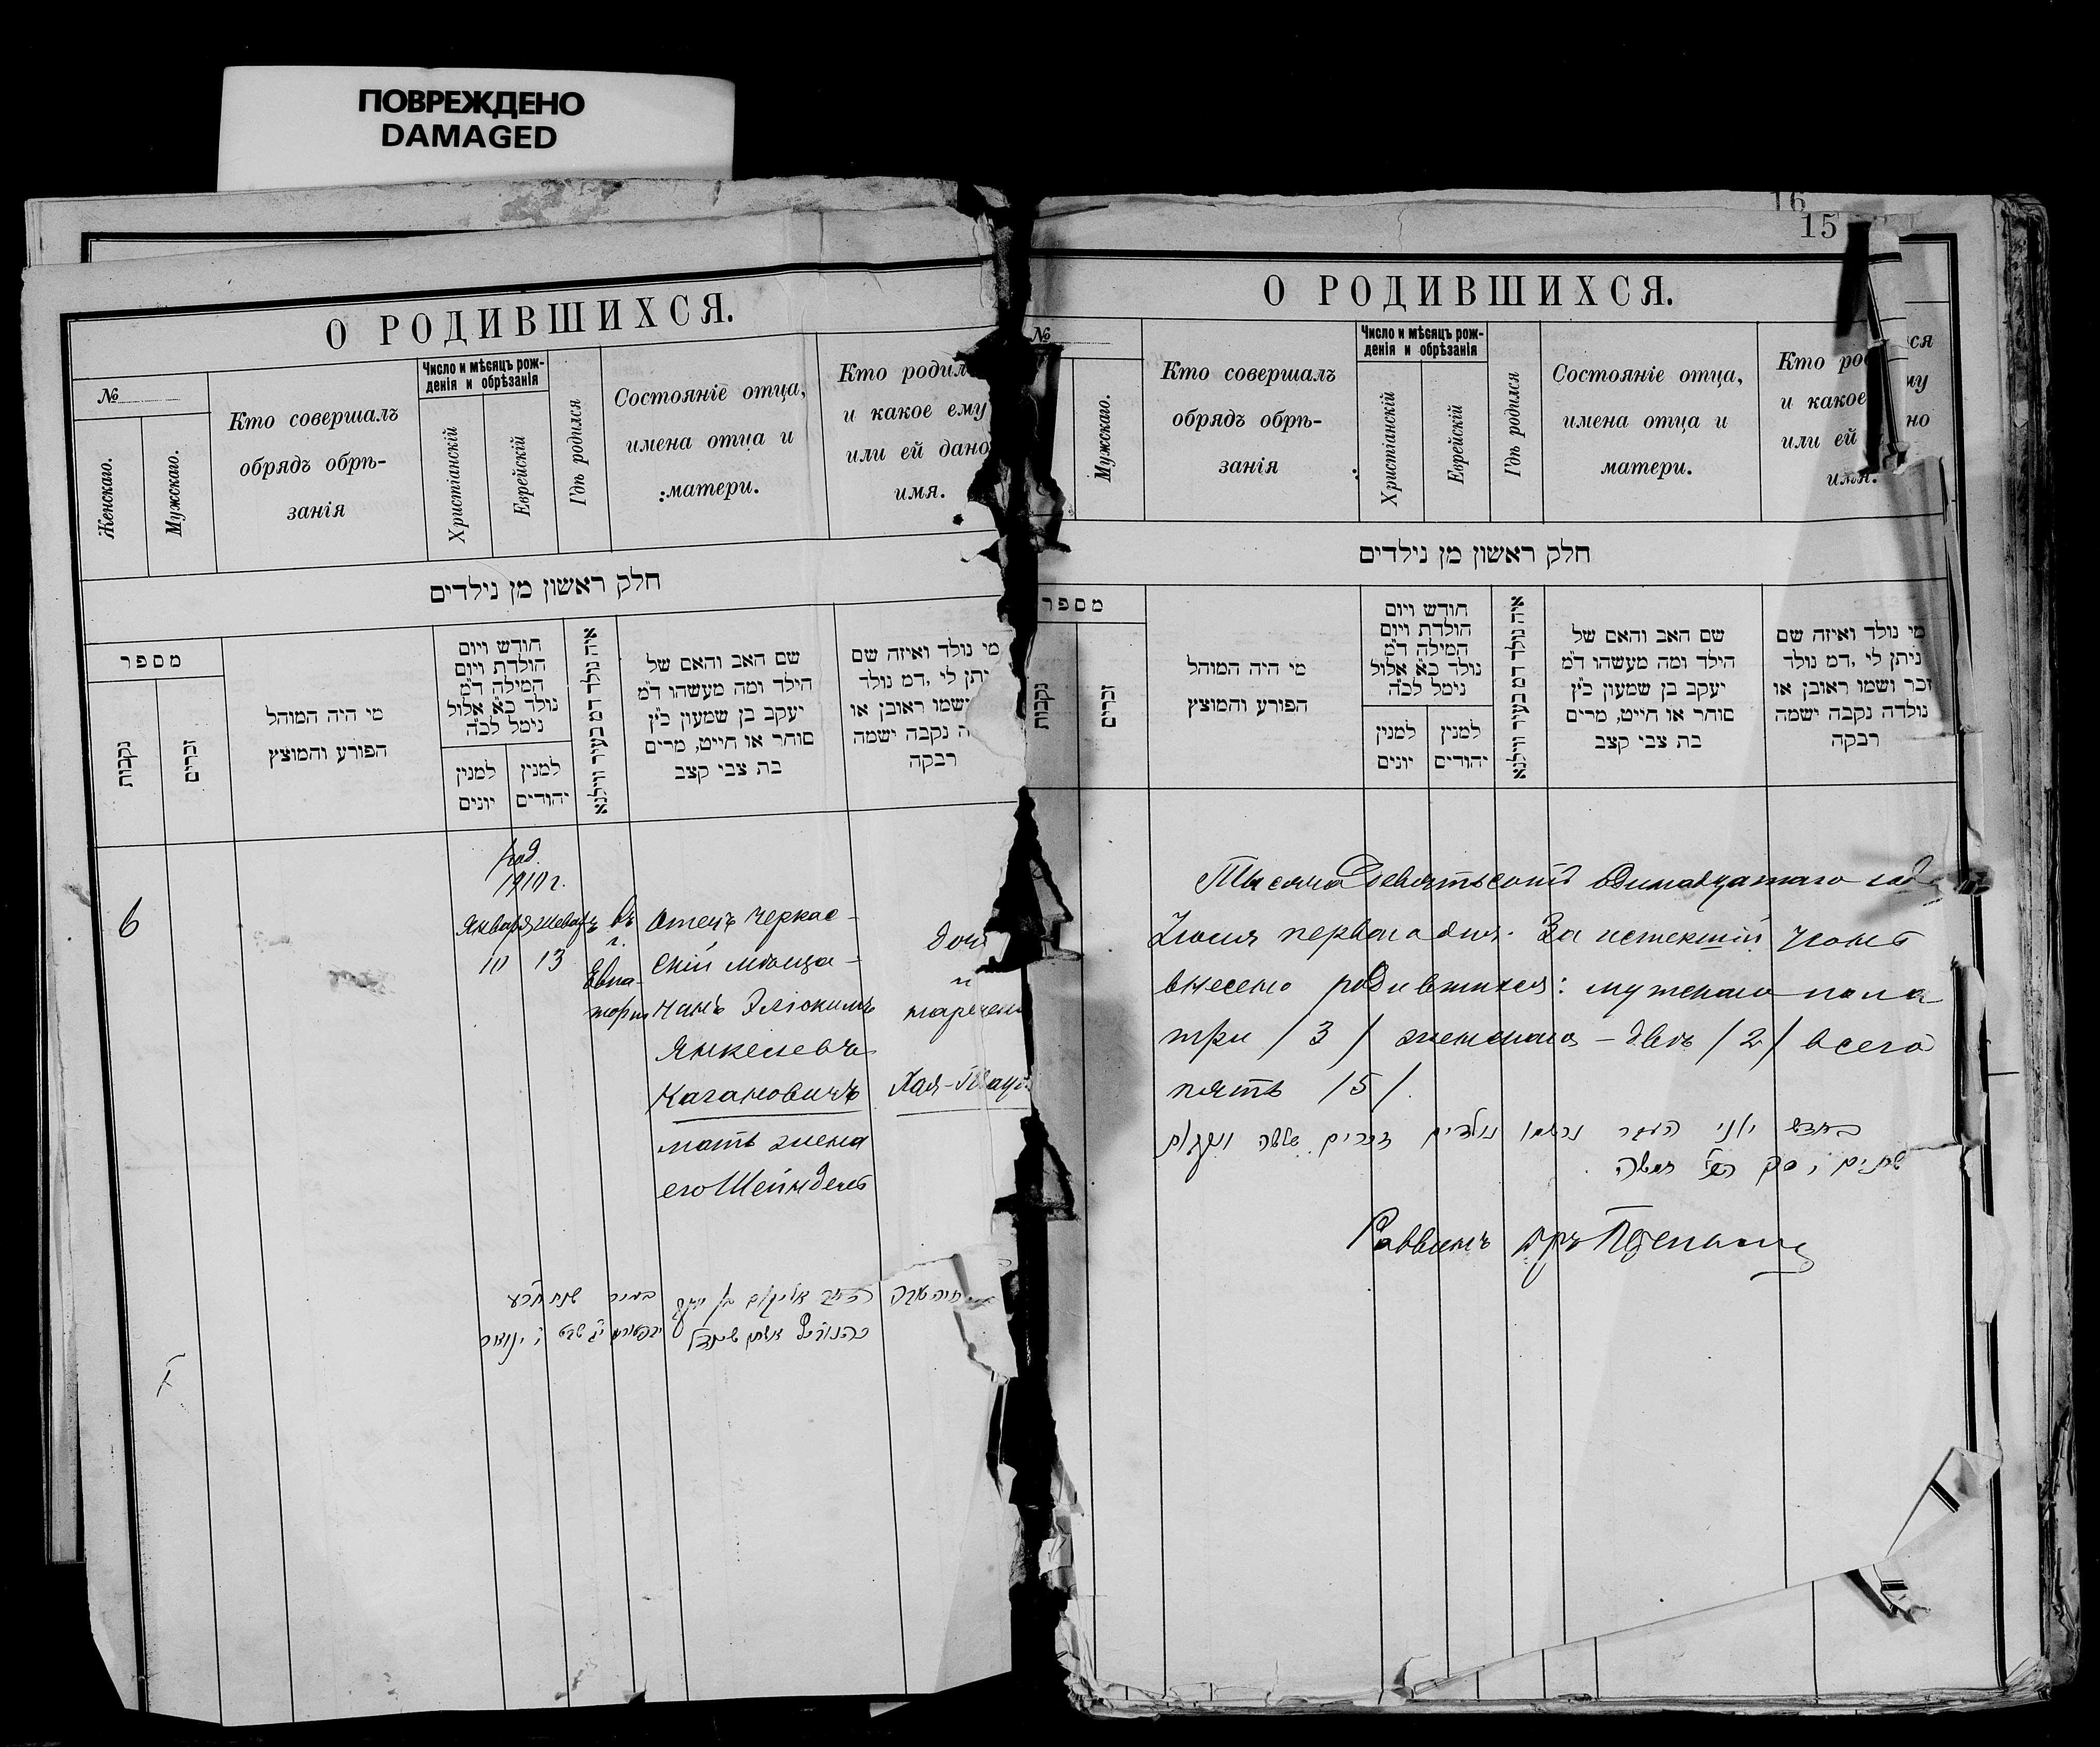 ПОВРЕЖДЕНО
DAMAGED
О РОДИВШИХСЯ.
№
Женскаго.
Мужскаго.
Кто совершалъ
обрядъ обрѣ-
занія
Число и мѣсяцъ рож-
денія и обрѣзанія
Христіанскій
Еврейскій
Гдѣ родился
Состояніе отца,
имена отца и
матери.
Кто родил
и какое ему
или ей дано
имя.
חלק ראשון מן נילדים
מספר
נקבות
זכרים
מי היה המוהל
הפורע והמוצץ
חודש ויום
הולדת ויום
המילה ד״מ
נולד כ״א אלול
נימל לכ״ה
למנין
יונים
למנין
יהודים
איה נולד דמ בעיר ווילנא
שם האב והאם של
הילד ומה מעשהו ד״מ
יעקב בן שמעון כ״ץ
סוחר או חייט, מרים
בת צבי קצב
מי נולד ואיזה שם
יתן לי ,דמ נולד
שמו ראובן או
ה נקבה ישמה
רבקה
6
1910 г.
Января
10
13
въ
г.
Евпа-
торіи
Отецъ Черкас-
скій мѣща-
нинъ Эліокимъ
Янкелевъ
Кагановичъ
мать жена
его Шейндель
доч
нареченн
Хая-
16
15
О РОДИВШИХСЯ.
№
Мужскаго.
Кто совершалъ
обрядъ обрѣ-
занія
Число и мѣсяцъ рож-
денія и обрѣзанія
Христіанскій
Еврейскій
Гдѣ родился
Состояніе отца,
имена отца и
матери.
Кто ро
и какое
или ей
имя.
ся
му
но
חלק ראשון מן נילדים
מספר
נקבות
זכרים
מי היה המוהל
הפורע והמוצץ
חודש ויום
הולדת ויום
המילה ד״מ
נולד כ״א אלול
נימל לכ״ה
למנין
יונים
למנין
יהודים
איה נולד דמ בעיר ווילנא
שם האב והאם של
הילד ומה מעשהו ד״מ
יעקב בן שמעון כ״ץ
סוחר או חייט, מרים
בת צבי קצב
מי נולד ואיזה שם
ניתן לי ,דמ נולד
זכר ושמו ראובן או
נולדה נקבה ישמה
רבקה
Тысяча девятьсотъ одинадцатаго года
Іюля перваго дня. За истекшій Іюнь
внесено родившихся: мужскаго пола
три /3/ женскаго – двѣ /2/ всего
пять /5/.
בחודש יוני העבר נרשמו נולדים זכרים שלשה ונקבות
שתים, סך הכל חמשה
Раввинъ